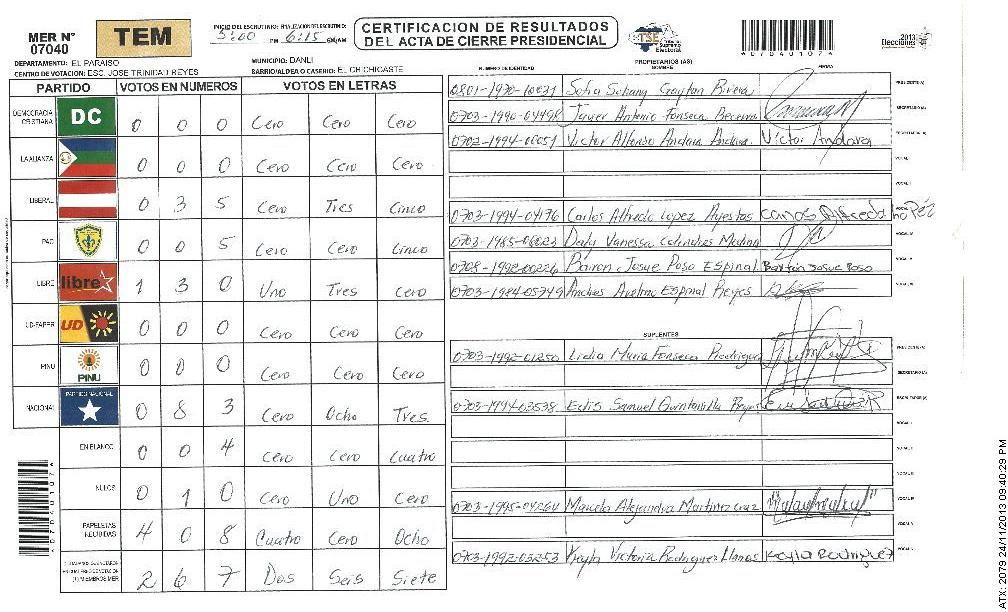 MER N° 07040
TEM
INICIO DEL ESCRUTINIO: FINALIZACION DEL ESCRUTINIO:
5:00 PM 6:15 AM/AM
CERTIFICACION DE RESULTADOS
DEL ACTA DE CIERRE PRESIDENCIAL
TSE
Tribunal Supremo Electoral
*070401074*
2013
Elecciones
DEPARTAMENTO: EL PARAISO
MUNICIPIO: DANLI
CENTRO DE VOTACION: ESC. JOSE TRINIDAD REYES
BARRIO/ALDEA O CASERIO: EL CHICHICASTE
PARTIDO VOTOS EN NUMEROS VOTOS EN LETRAS
DEMOCRACIA CRISTIANA DC 0 0 0 Cero Cero Cero
LA ALIANZA 0 0 0 Cero Cero Cero
LIBERAL 0 3 5 Cero Tres Cinco
PAC 0 0 5 Cero Cero Cinco
LIBRE libre 1 3 0 Uno Tres Cero
UD-FAPER UD 0 0 0 Cero Cero Cero
PINU PINU 0 0 0 Cero Cero Cero
NACIONAL PARTIDO NACIONAL 0 8 3 Cero Ocho Tres
EN BLANCO 0 0 4 Cero Cero Cuatro
NULOS 0 1 0 Cero Uno Cero
PAPELETAS RECIBIDAS 4 0 8 Cuatro Cero Ocho
(*) MIEMBROS MER 2 6 7 Dos Seis Siete
*070401074*
PROPIETARIOS (AS)
NUMERO DE IDENTIDAD NOMBRE FIRMA
0801-1970-10031 Sofia Gaytan Rivera PRESIDENTE(A)
0703-1990-04498 Javier Antonio Fonseca Becerra SECRETARIO (A)
0702-1994-00051 Victor Alfonso Andara Andara Victor Andara ESCRUTADOR (A)
VOCAL I
VOCAL II
0703-1994-04176 Carlos Alfredo Lopez Ayestas Carlos Alfredo
0703-1985-06823 Vanessa Colindres Medina
0708-1992-00226 Bairon Josue Poso Espinal Bairon Josue Poso
0703-1984-05749 Andres Avelino Espinal Reyes
SUPLENTES
0703-1992-01250 Lidia Maria Fonseca Rodriguez PRESIDENTE(A)
SECRETARIO (A)
0703-1994-03538 Edis Samuel Quintanilla Reyes ESCRUTADOR (A)
VOCAL I
VOCAL II
VOCAL III
0703-1995-04264 Marcela Alejandra Martinez Cruz VOCAL IV
VOCAL V
0703-1992-03253 Keyla Victoria Rodriguez Llanos Keyla Rodriguez
ATX: 2079 24/11/2013 09:40:29 PM